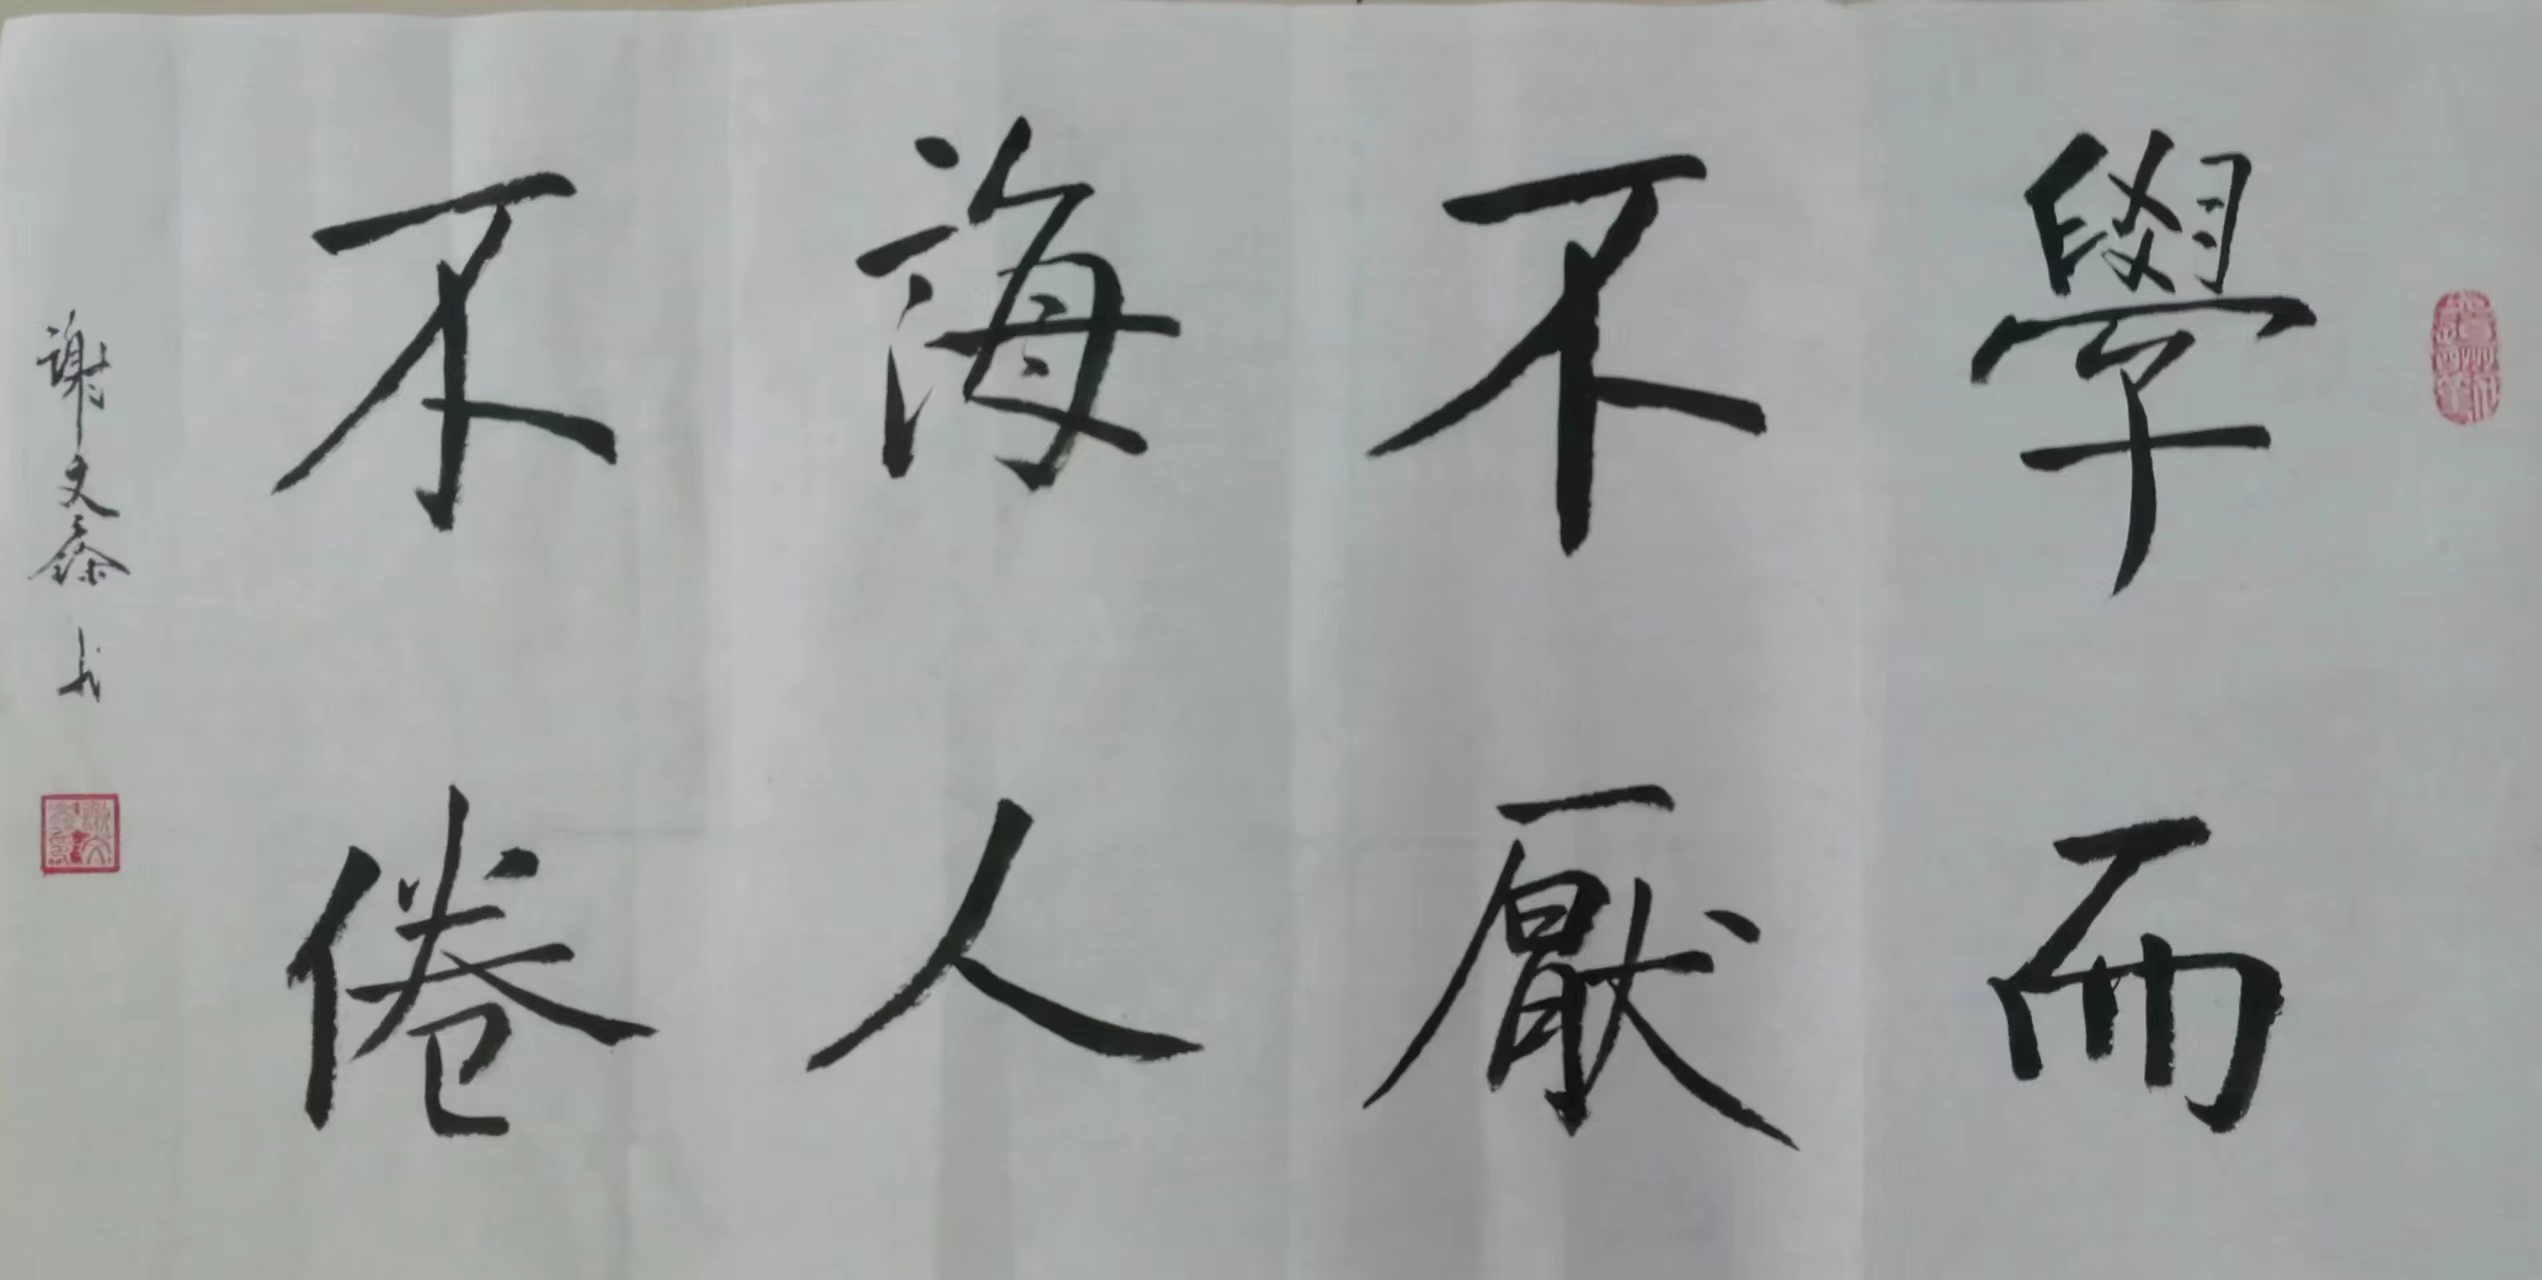 學而
不厭
誨人
不倦
謝文 书